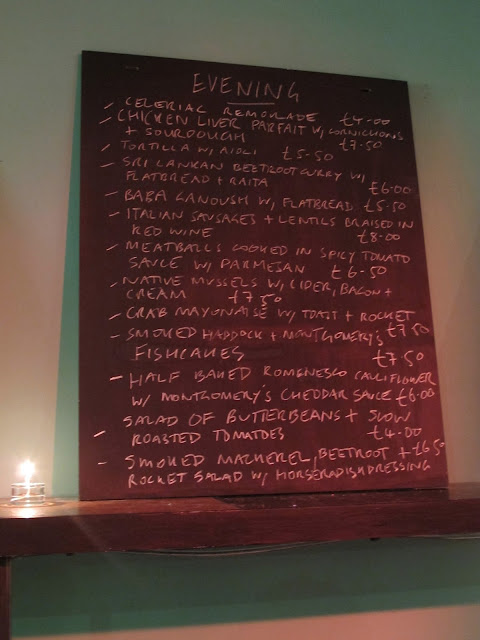 EVENING
- CELERIAC REMOULADE £4.00
- CHICKEN LIVER PARFAIT W/ CORNICHONS
+ SOURDOUGH £7.50
- TORTILLA W/ AIOLI £5.50
- SRI LANKAN BEETROOT CURRY W/
FLATBREAD + RAITA £6.00
- BABA GANOUSH W/ FLATBREAD £5.50
- ITALIAN SAUSAGES + LENTILS BRAISED IN
RED WINE £8.00
- MEATBALLS COOKED IN SPICY TOMATO
SAUCE W/ PARMESAN £6.50
- NATIVE MUSSELS W/ CIDER, BACON +
CREAM £7.50
- CRAB MAYONAISE W/ TOAST + ROCKET
- SMOKED HADDOCK + MONTGOMERY'S £7.50
FISHCAKES £7.50
- HALF BAKED ROMENESCO CAULIFLOWER
W/ MONTGOMERY'S CHEDDAR SAUCE £6.00
- SALAD OF BUTTERBEANS + SLOW
ROASTED TOMATOES £4.00
- SMOKED MACKEREL, BEETROOT + £6.50
ROCKET SALAD W/ HORSERADISH DRESSING